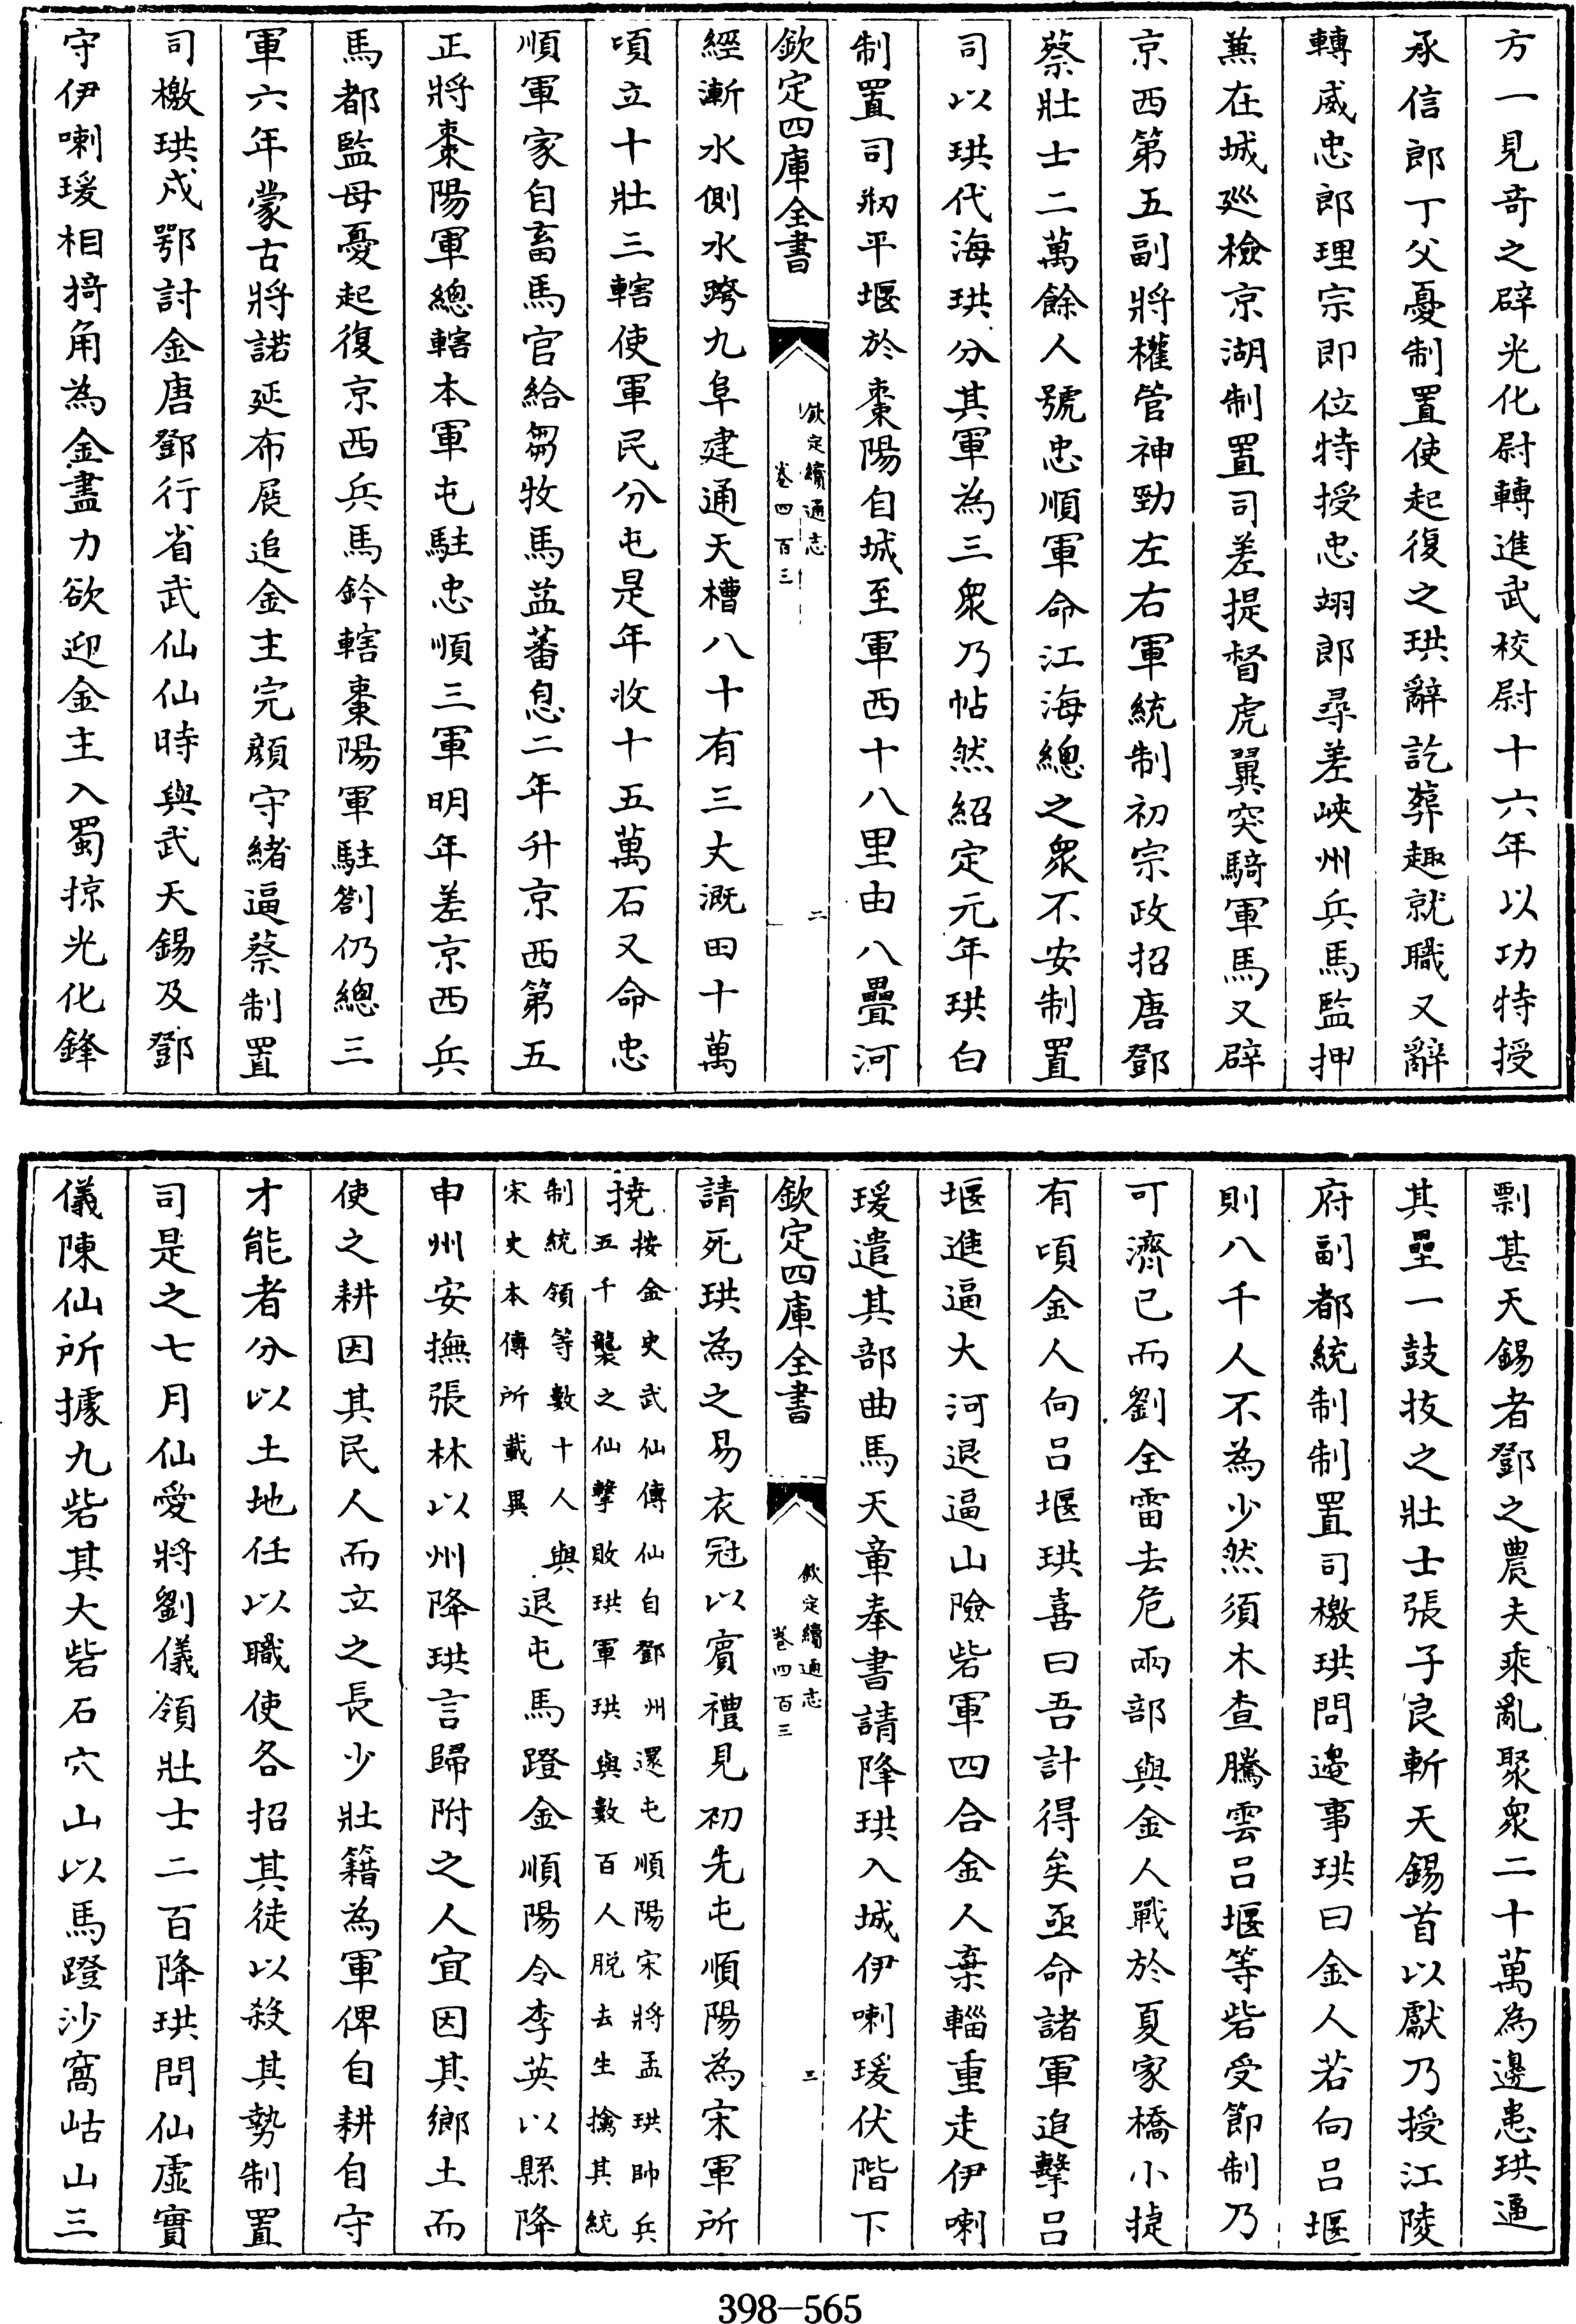 方一見奇之辟光化尉轉進武校尉十六年以功特授
承信郎丁父憂制置使起復之珙辭訖葬趣就職又辭
轉威忠郎理宗即位特授忠翊郎尋差峽州兵馬監押
兼在城廵檢京湖制置司差提督虎翼突騎軍馬又辟
京西第五副將權管神勁左右軍統制初宗政招唐鄧
蔡壯士二萬餘人號忠順軍命江海總之衆不安制置
司以珙代海珙分其軍為三衆乃帖然紹定元年珙白
制置司剏平堰於棗陽自城至軍西十八里由八疊河
欽定四庫全書
欽定續通志
卷四百三
二
經漸水側水跨九阜建通天槽八十有三丈溉田十萬
頃立十壯三轄使軍民分屯是年收十五萬石又命忠
順軍家自畜馬官給芻牧馬益蕃息二年升京西第五
正將棗陽軍總轄本軍屯駐忠順三軍明年差京西兵
馬都監母憂起復京西兵馬鈐轄棗陽軍駐劄仍總三
軍六年蒙古將諾延布展追金主完顏守緒逼蔡制置
司檄珙戍鄂討金唐鄧行省武仙仙時與武天錫及鄧
守伊喇瑗相掎角為金盡力欲迎金主入蜀掠光化鋒
剽甚天錫者鄧之農夫乘亂聚衆二十萬為邊患珙逼
其壘一鼓拔之壯士張子良斬天錫首以獻乃授江陵
府副都統制制置司檄珙問邊事珙曰金人若向呂堰
則八千人不為少然須木查騰雲呂堰等砦受節制乃
可濟已而劉全雷去危兩部與金人戰於夏家橋小捷
有頃金人向呂堰珙喜曰吾計得矣亟命諸軍追擊呂
堰進逼大河退逼山險砦軍四合金人棄輜重走伊喇
瑗遣其部曲馬天章奉書請降珙入城伊喇瑗伏階下
欽定四庫全書
欽定續通志
卷四百三
三
請死珙為之易衣冠以賓禮見初先屯順陽為宋軍所
撓按金史武仙傳仙自鄧州還屯順陽宋將孟珙帥兵
五千襲之仙擊敗珙軍珙與數百人脱去生擒其統
制統領等數十人與
宋史本傳所載異
退屯馬蹬金順陽令李英以縣降
申州安撫張林以州降珙言歸附之人宜因其鄉土而
使之耕因其民人而立之長少壯籍為軍俾自耕自守
才能者分以土地任以職使各招其徒以殺其勢制置
司是之七月仙愛將劉儀領壯士二百降珙問仙虛實
儀陳仙所據九砦其大砦石穴山以馬蹬沙窩岵山三
398—565